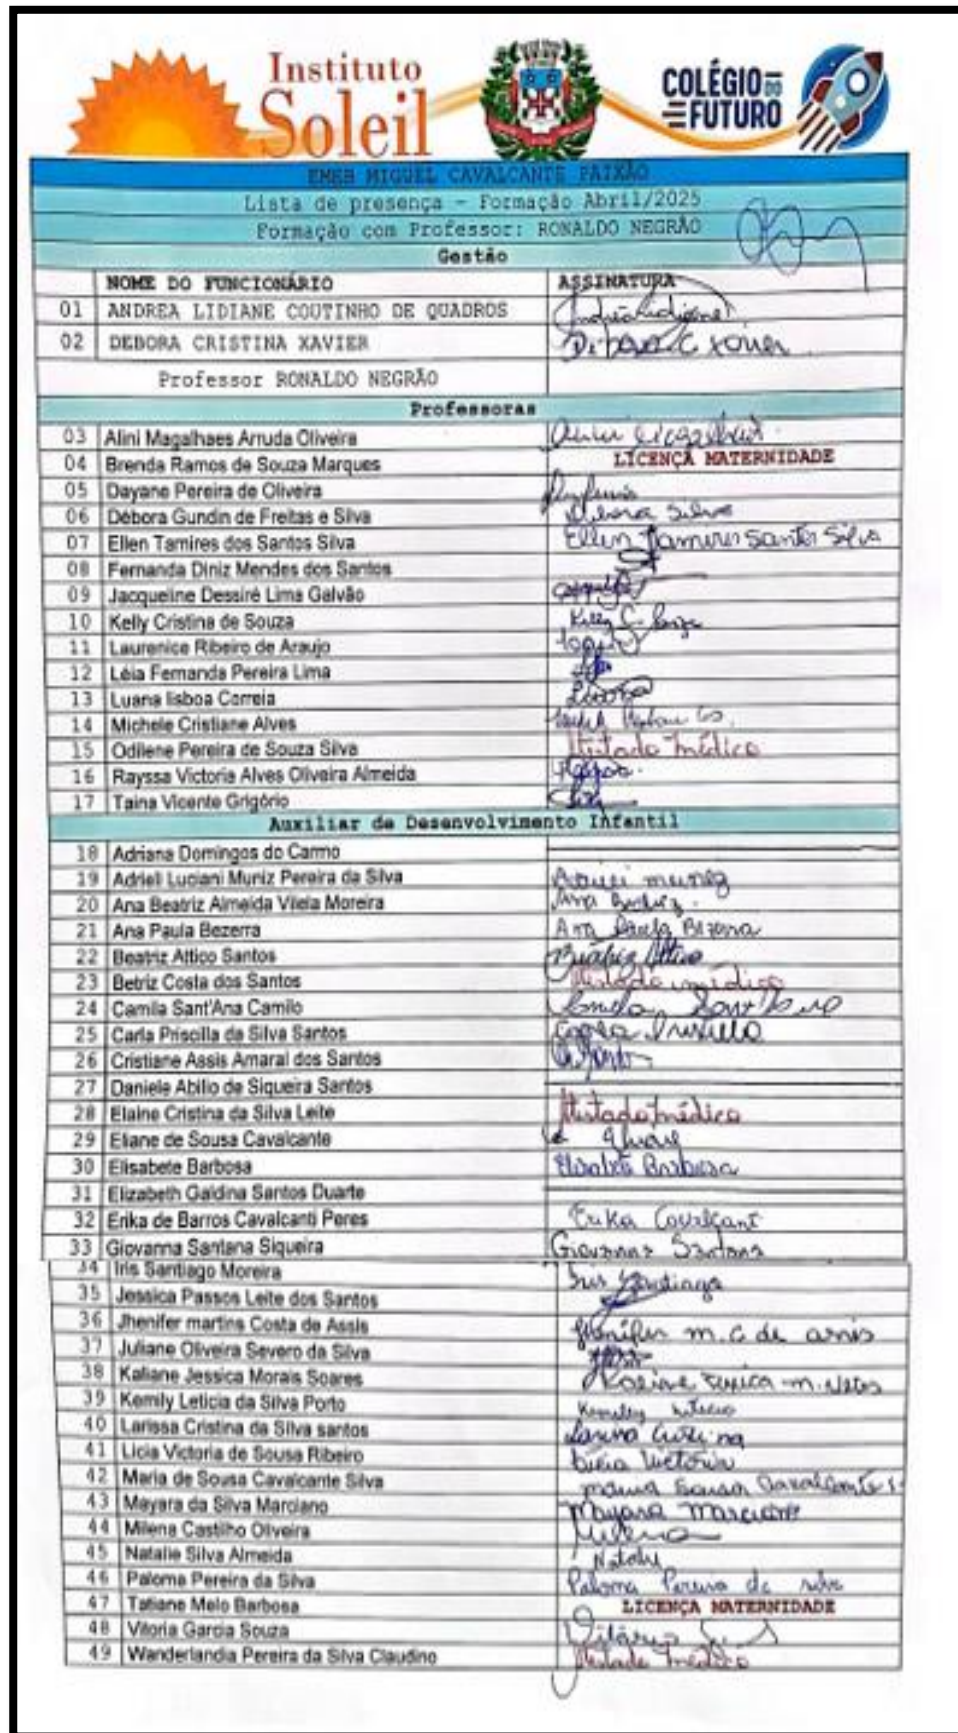 Instituto
Soleil
COLÉGIO DO
FUTURO
EMEB MIGUEL CAVALCANTE PAIXÃO
Lista de presença - Formação Abril/2025
Formação com Professor: RONALDO NEGRÃO
Gestão
NOME DO FUNCIONÁRIO ASSINATURA
01 ANDREA LIDIANE COUTINHO DE QUADROS
02 DEBORA CRISTINA XAVIER Debora C Xavier
Professor RONALDO NEGRÃO
Professoras
03 Alini Magalhaes Arruda Oliveira
04 Brenda Ramos de Souza Marques LICENÇA MATERNIDADE
05 Dayane Pereira de Oliveira
06 Débora Gundin de Freitas e Silva Débora Silva
07 Ellen Tamires dos Santos Silva Ellen Tamires Santos Silva
08 Fernanda Diniz Mendes dos Santos
09 Jacqueline Dessiré Lima Galvão
10 Kelly Cristina de Souza Kelly C. Souza
11 Laurenice Ribeiro de Araujo
12 Léia Fernanda Pereira Lima
13 Luana lisboa Correia
14 Michele Cristiane Alves
15 Odilene Pereira de Souza Silva Atestado médico
16 Rayssa Victoria Alves Oliveira Almeida
17 Taina Vicente Grigório
Auxiliar de Desenvolvimento Infantil
18 Adriana Domingos do Carmo
19 Adrieli Luciani Muniz Pereira da Silva
20 Ana Beatriz Almeida Vilela Moreira Ana Beatriz.
21 Ana Paula Bezerra Ana Paula Bezerra
22 Beatriz Attico Santos Beatriz Attico
23 Betriz Costa dos Santos Atestado médico
24 Camila Sant'Ana Camilo
25 Carla Priscilla da Silva Santos Carla Priscilla
26 Cristiane Assis Amaral dos Santos
27 Daniele Abilio de Siqueira Santos
28 Elaine Cristina da Silva Leite Atestado médico
29 Eliane de Sousa Cavalcante
30 Elisabete Barbosa Elisabete Barbosa
31 Elizabeth Galdina Santos Duarte
32 Erika de Barros Cavalcanti Peres Erika Cavalcant
33 Giovanna Santana Siqueira Giovanna Santana
34 Iris Santiago Moreira Iris Santiago
35 Jessica Passos Leite dos Santos
36 Jhenifer martins Costa de Assis Jhenifer m. C. de assis
37 Juliane Oliveira Severo da Silva
38 Katiane Jessica Morais Soares
39 Kemily Leticia da Silva Porto Kemily Leticia
40 Larissa Cristina da Silva santos Larissa Cristina
41 Licia Victoria de Sousa Ribeiro Licia Victoria
42 Maria de Sousa Cavalcante Silva maria Sousa Cavalcante S
43 Mayara da Silva Marciano Mayara Marciano
44 Milena Castilho Oliveira Milena
45 Natalie Silva Almeida Natalie
46 Paloma Pereira da Silva Paloma Pereira da silva
47 Tatiane Melo Barbosa LICENÇA MATERNIDADE
48 Vitoria Garcia Souza
49 Wanderlandia Pereira da Silva Claudino Atestado médico